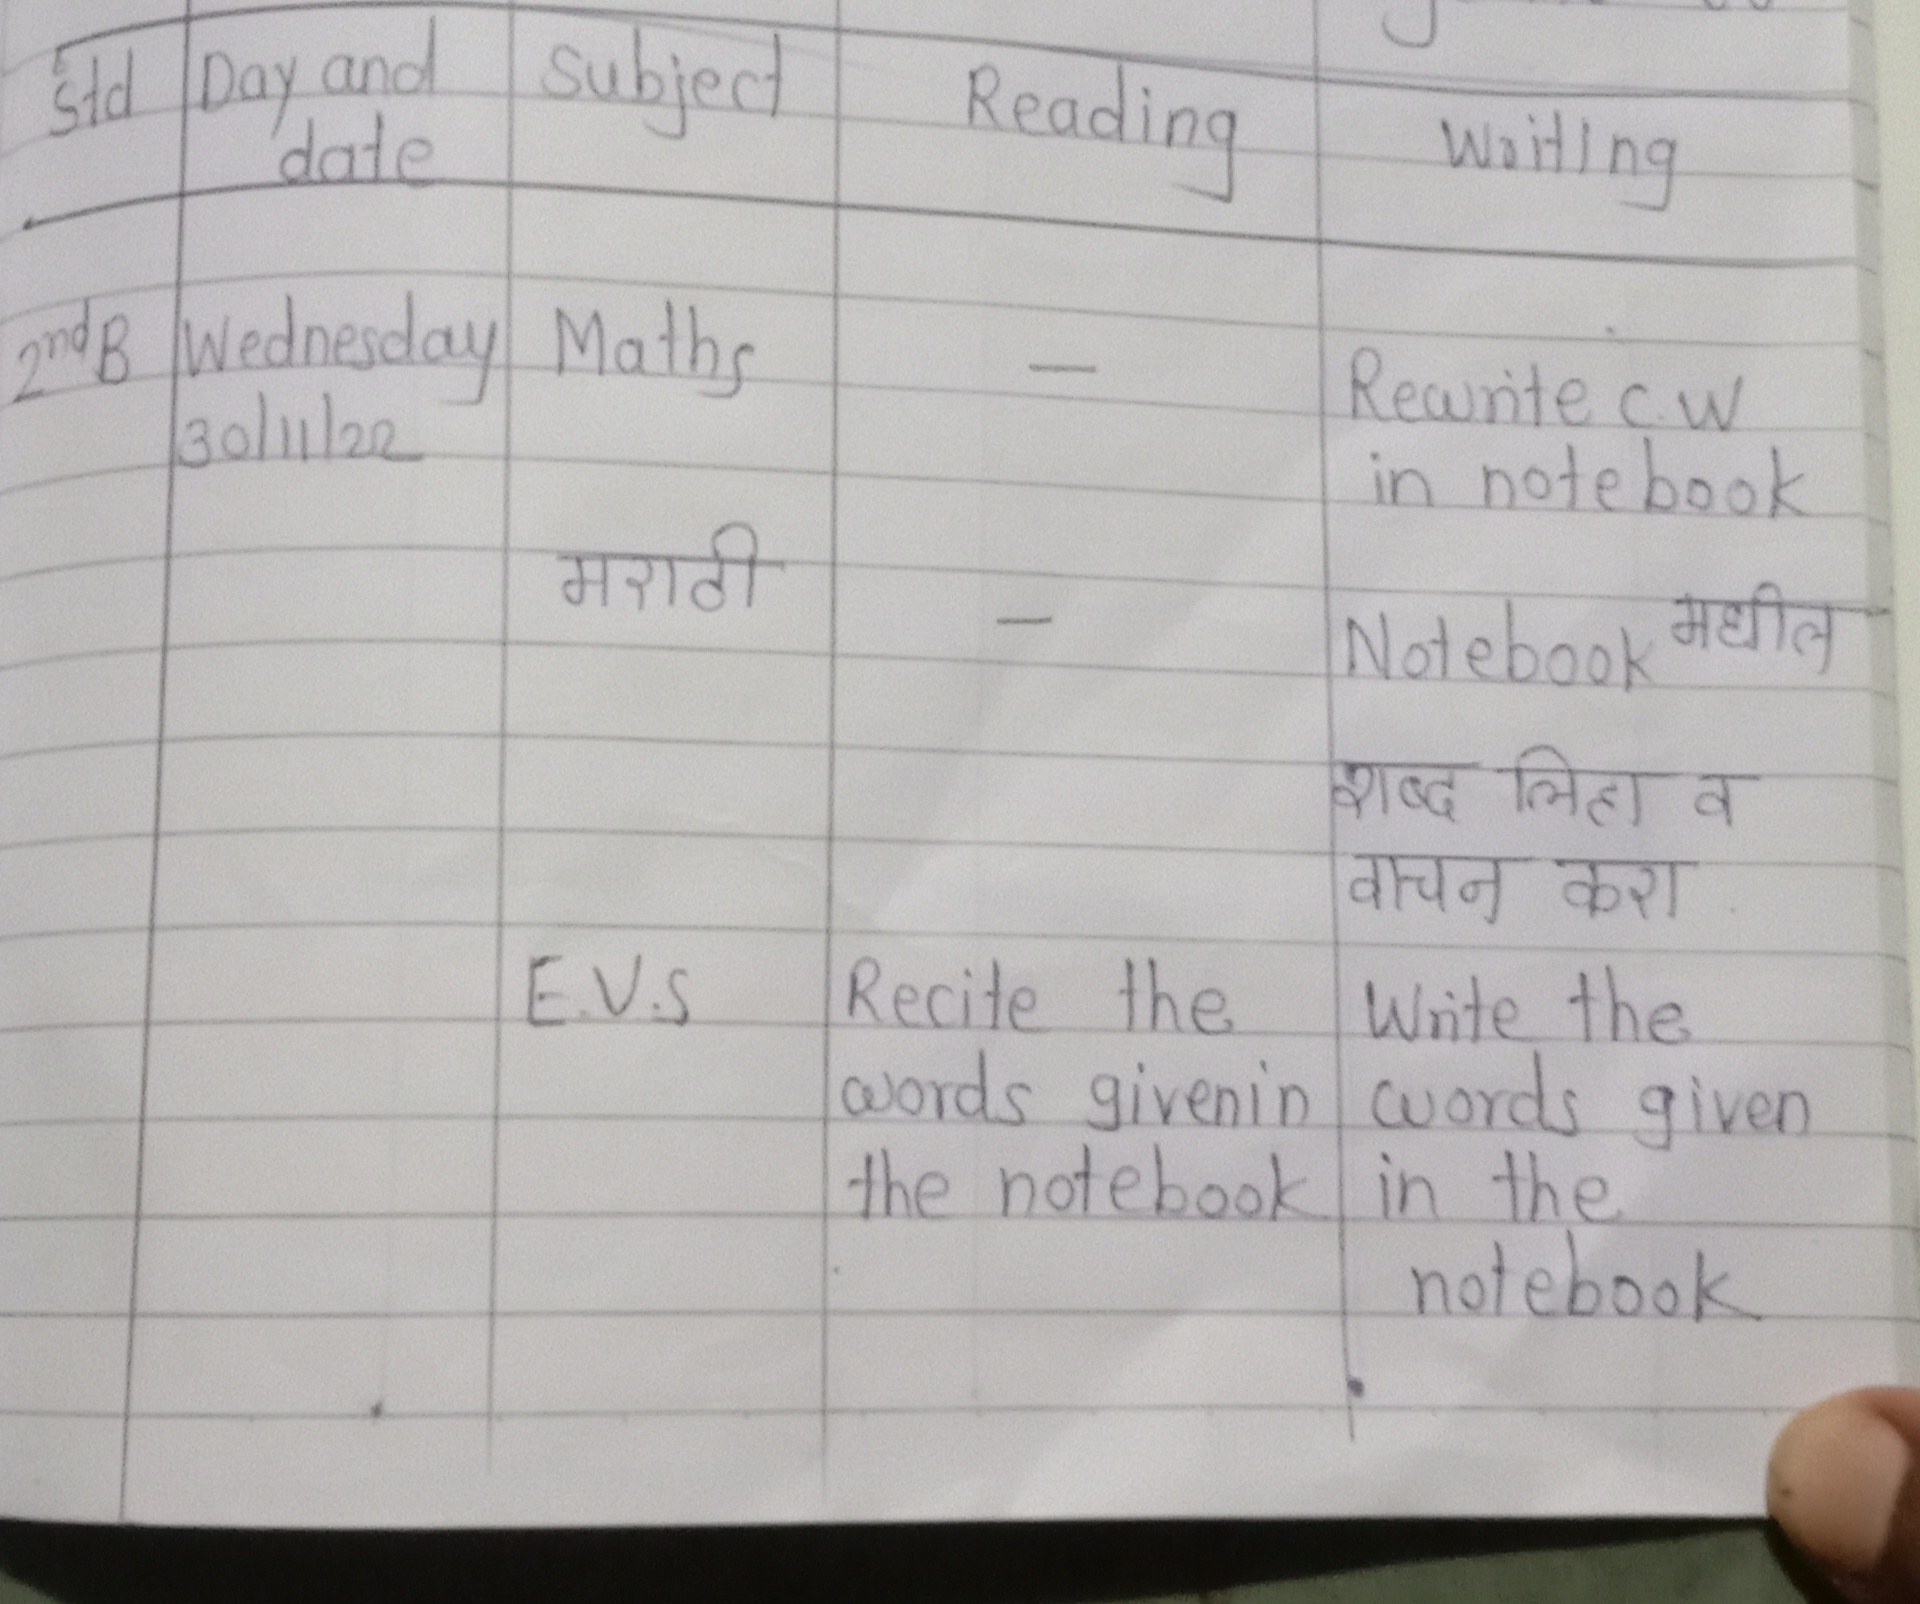 Std Day and date Subject Reading Writing
2nd B Wednesday Maths — Rewrite c.w
30/11/22 in notebook
मराठी — Notebook मधील
शब्द लिहा व
वाचन करा
E.V.S Recite the Write the
words givenin words given
the notebook in the
notebook